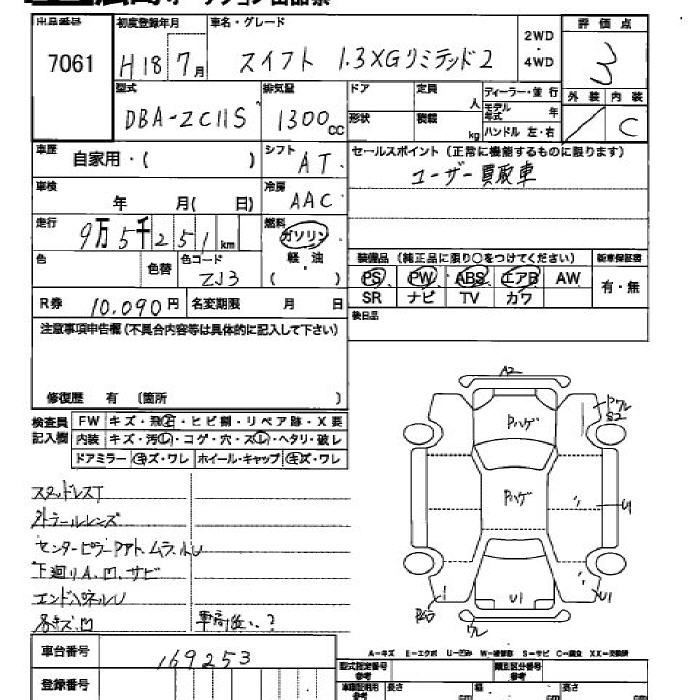 出品番号 初度登録年月 車名・グレード 2WD・4WD 評価点
7061 H18 7月 スイフト 1.3XGリミテッド2 3
型式 排気量 ドア 定員 人 ディーラー・並行 外装 内装
DBA-ZC11S 1300cc 形状 積載 kg モデル年式 年 ハンドル 左・右 C
車歴 自家用・( ) シフト AT セールスポイント (正常に機能するものに限ります)
ユーザー買取車
車検 年 月( 日) 冷房 AAC
走行 9万5千251km 燃料 ガソリン 軽・油 ( )
色 色替 色コード ZJ3
装備品 (純正品に限り○をつけてください) 新車保証書
PS PW ABS エアB AW 有・無
SR ナビ TV カワ
R券 10,090円 名変期限 月 日 後日品
注意事項申告欄(不具合内容等は具体的に記入して下さい)
修復歴 有 (箇所 )
検査員記入欄 FW キズ・飛石・ヒビ割・リペア跡・X要
内装 キズ・汚レ・コゲ・穴・スレ・ヘタリ・破レ
ドアミラー キズ・ワレ ホイール・キャップ キズ・ワレ
A2
Pハゲ
ワレ
S2
Pハゲ
U1
U1
ワレ
スタッドレスT
外テールレンズ
センターピラーPアト、ムラ、小U
下廻りA、凹、サビ
エンドパネルU
車高低い?
車台番号 169253
登録番号
A−キズ E−エクボ U−凹み W−補修跡 S−サビ C−腐食 XX−交換済
型式指定番号 参考 類別区分番号 参考
長さ cm 幅 cm 高さ cm